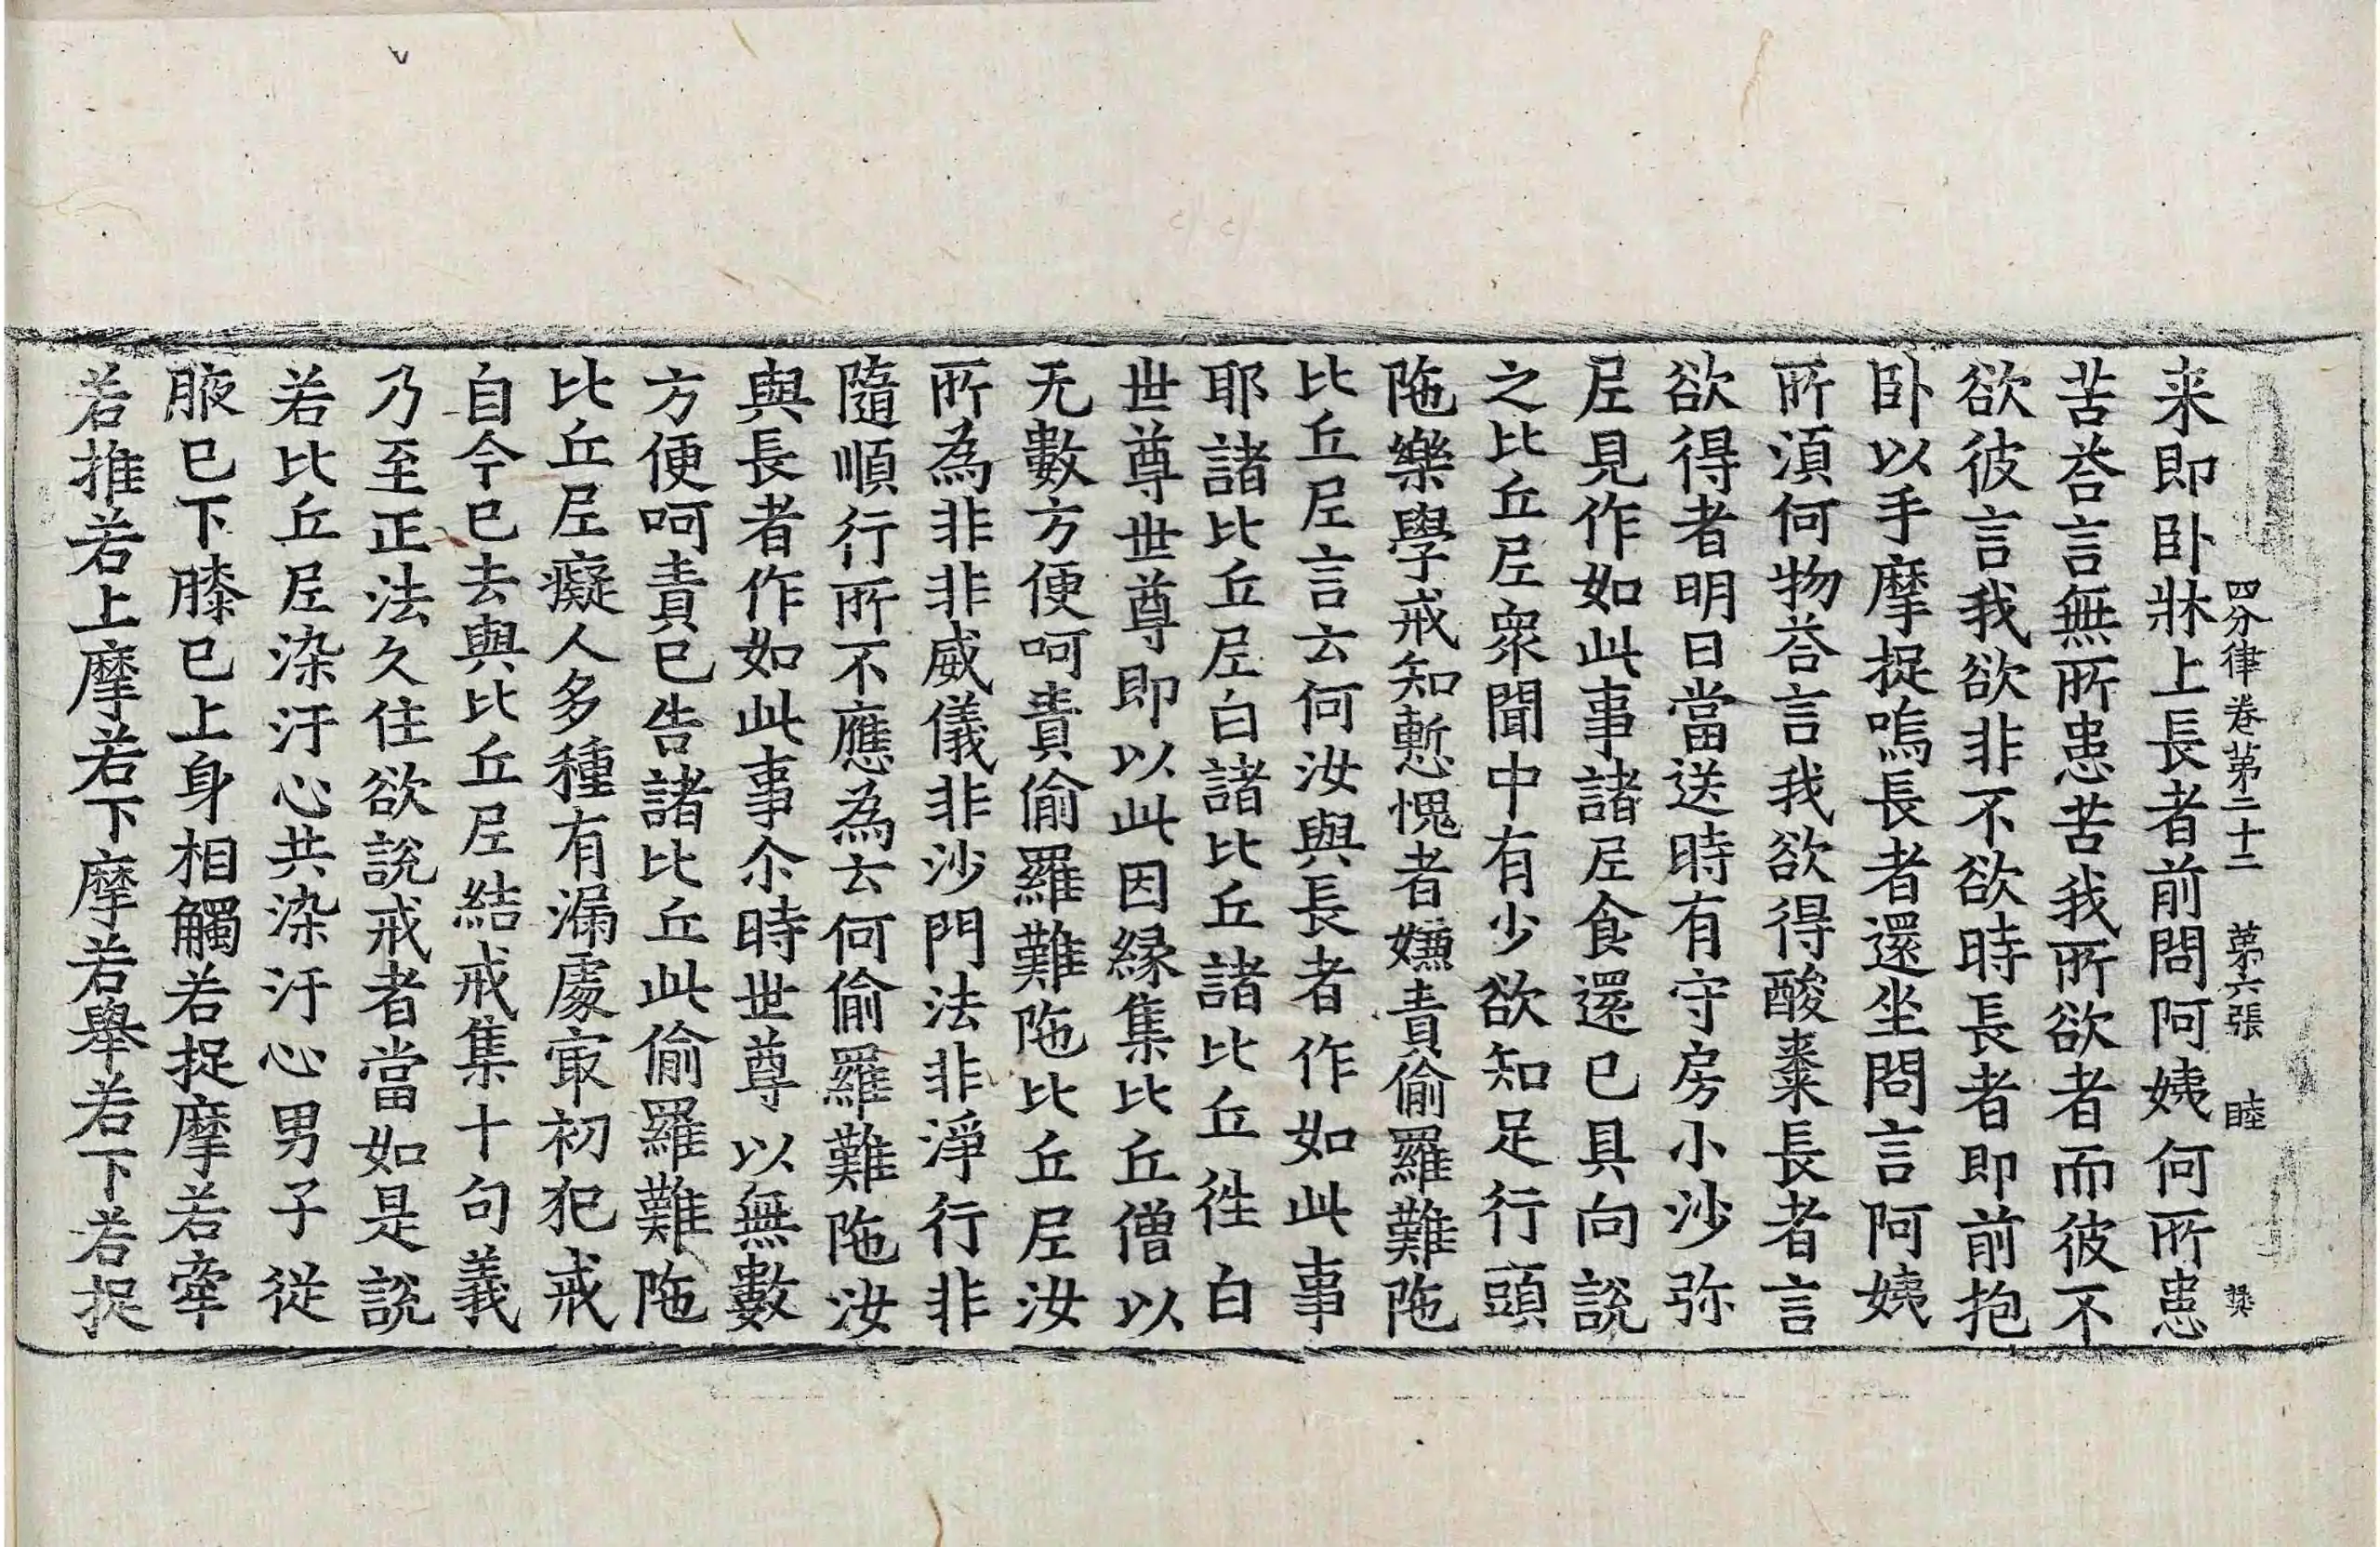 四分律卷第二十二 第六張 睦 龔
来即卧牀上長者前問阿姨何所患
苦荅言無所患苦我所欲者而彼不
欲彼言我欲非不欲時長者即前抱
卧以手摩捉嗚長者還坐問言阿姨
所湏何物荅言我欲得酸棗長者言
欲得者明日當送時有守房小沙弥
尼見作如此事諸尼食還已具向說
之比丘尼衆聞中有少欲知足行頭
陁樂學戒知慙愧者嫌責偷羅難陁
比丘尼言云何汝與長者作如此事
耶諸比丘尼白諸比丘諸比丘徃白
世尊世尊即以此因縁集比丘僧以
无數方便呵責偷羅難陁比丘尼汝
所為非非威儀非沙門法非淨行非
隨順行所不應為云何偷羅難陁汝
與長者作如此事尒時世尊以無數
方便呵責已告諸比丘此偷羅難陁
比丘尼癡人多種有漏處㝡初犯戒
自今已去與比丘尼結戒集十句義
乃至正法久住欲說戒者當如是說
若比丘尼染汙心共染汙心男子從
腋已下膝已上身相觸若捉摩若牽
若推若上摩若下摩若舉若下若捉